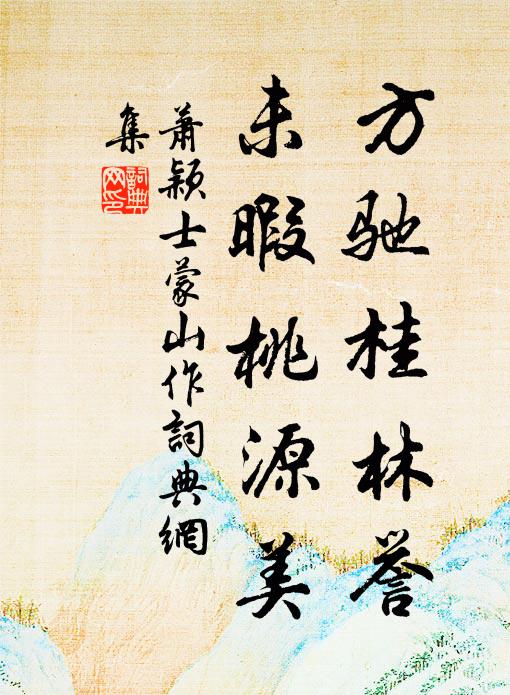 方驰桂林誉
未暇桃源美
萧颖士蒙山作词典網
集
詞典
网印